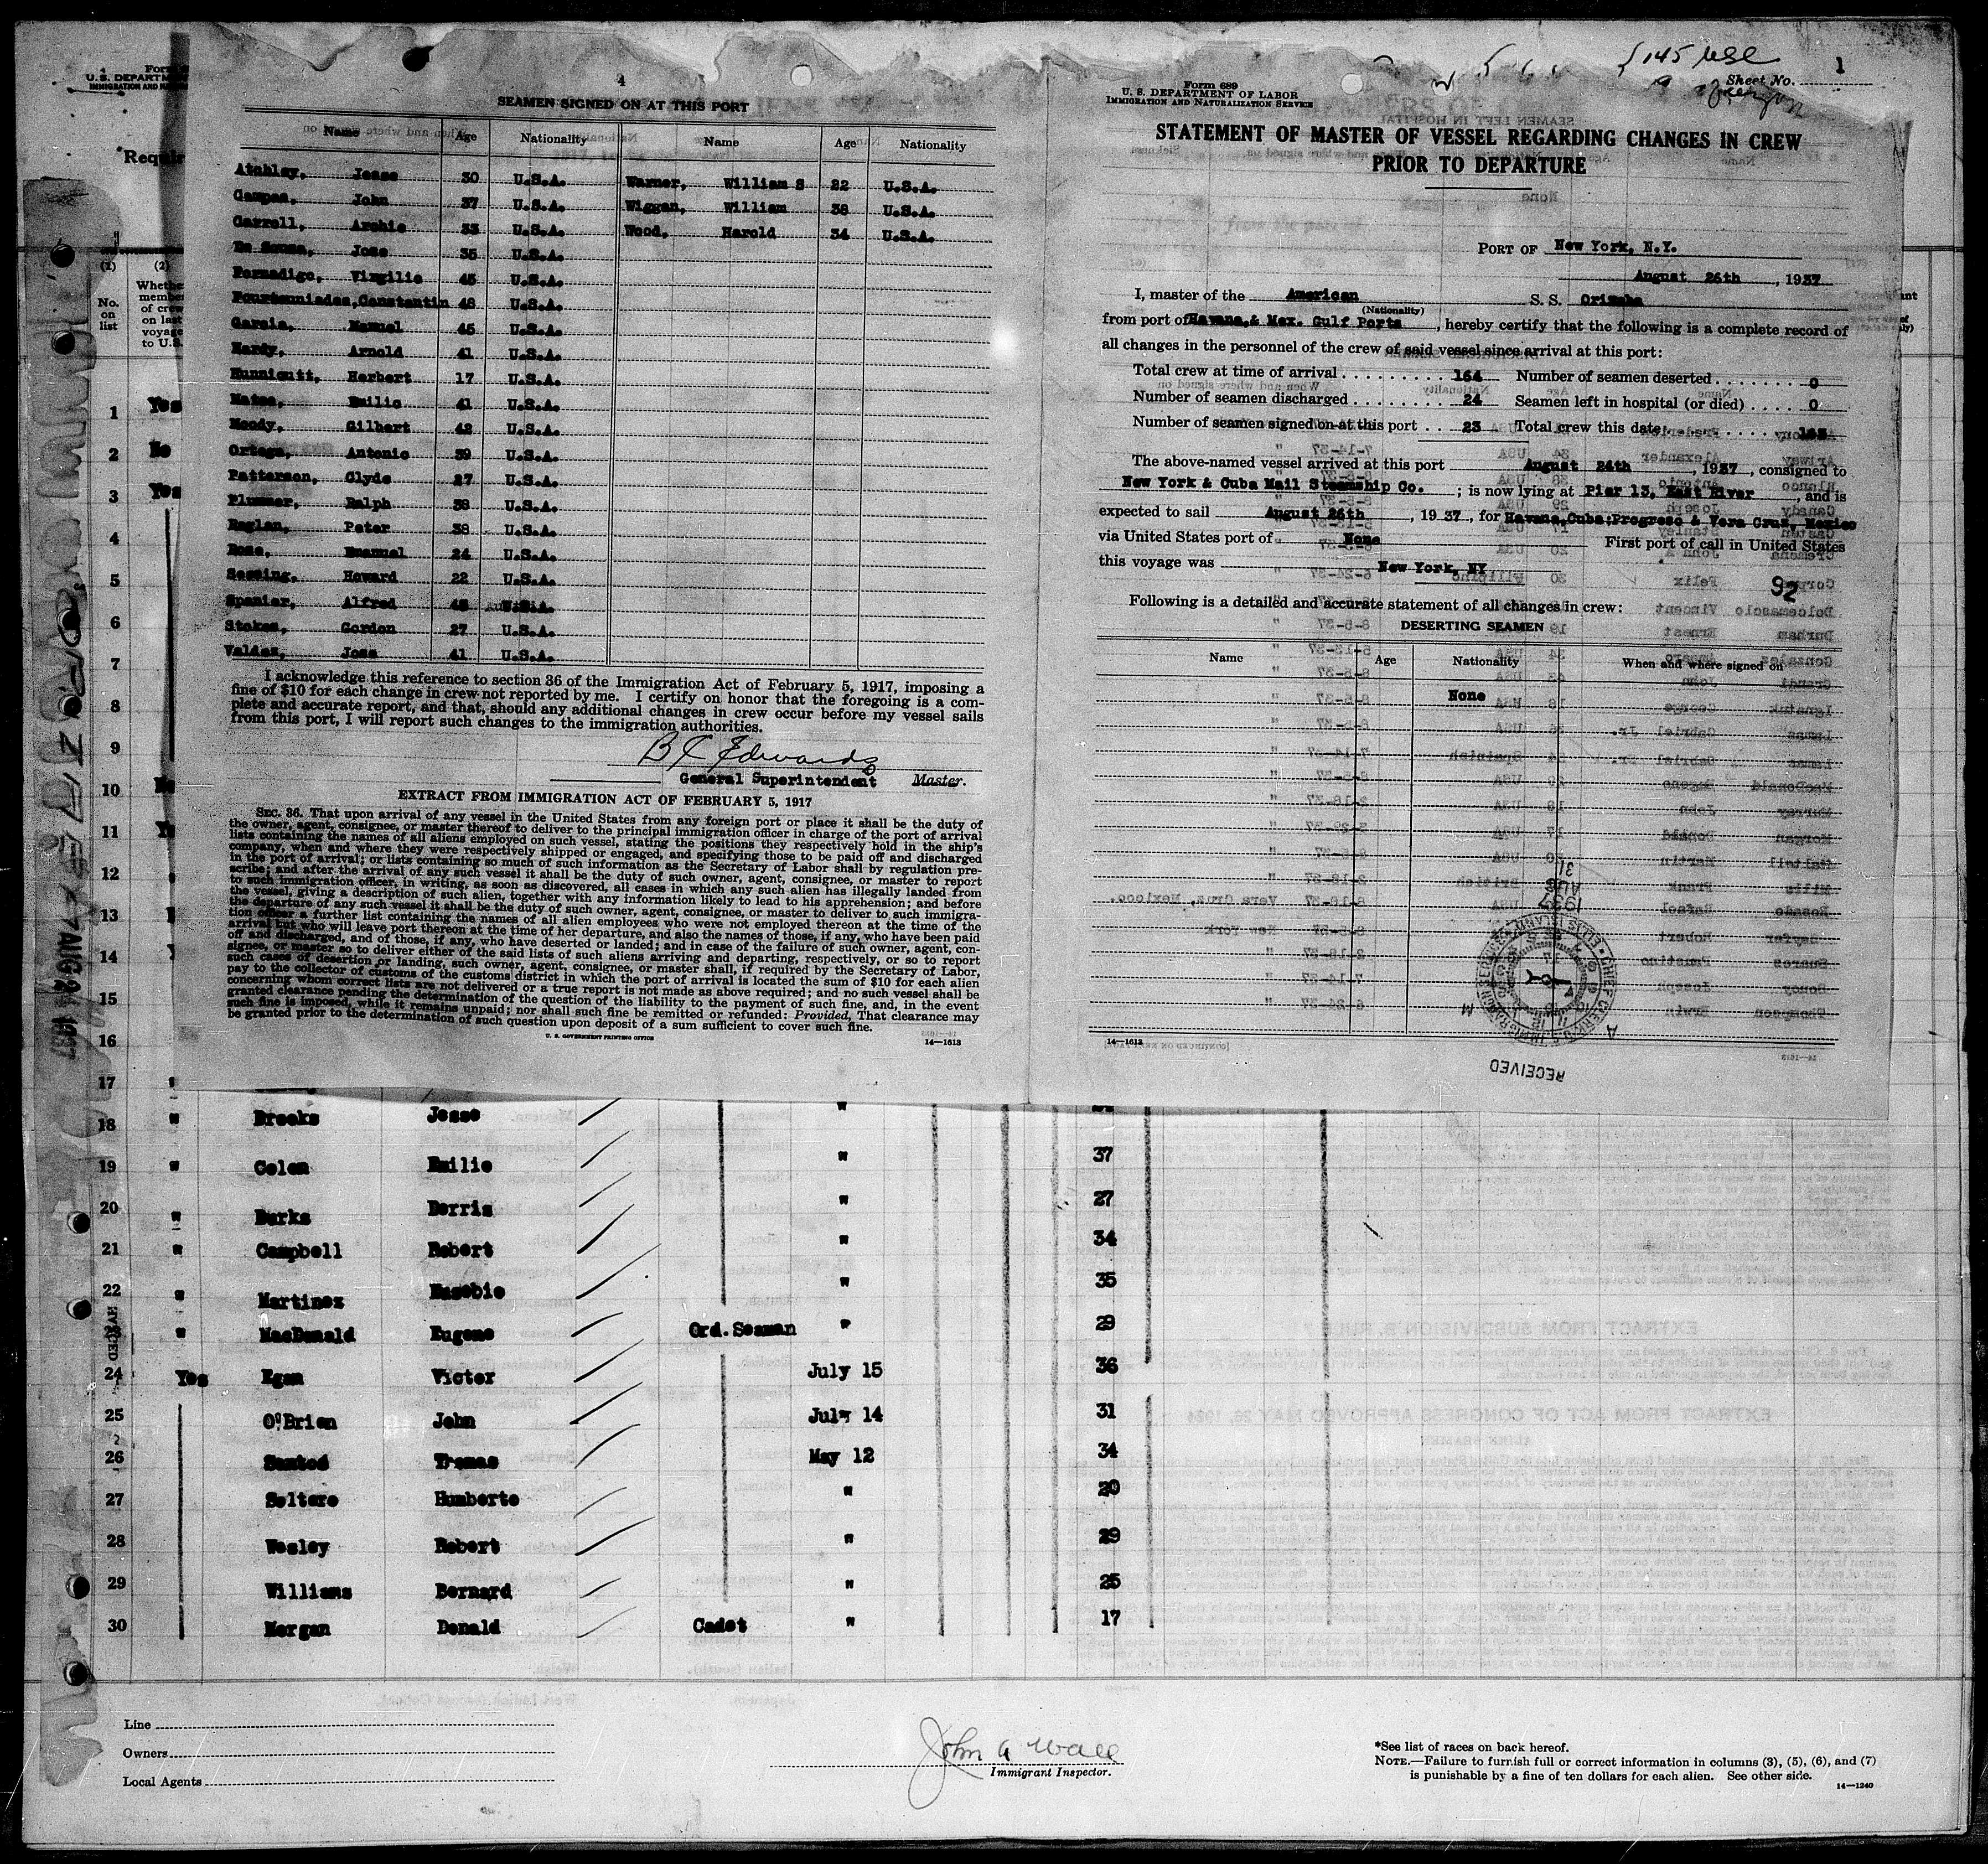 4
SEAMEN SIGNED ON AT THIS PORT
Name Age Nationality Name Age Nationality
Atchley, Jesse 30 U.S.A. Warner, William S 22 U.S.A.
Campos, John 37 U.S.A. Wiggan, William 38 U.S.A.
Carroll, Archie 33 U.S.A. Wood, Harold 34 U.S.A.
De Sousa, Jose 35 U.S.A.
Fernadigo, Virgilio 45 U.S.A.
Constantin 48 U.S.A.
Garcia, Manuel 45 U.S.A.
Hardy, Arnold 41 U.S.A.
Hunnicutt, Herbert 17 U.S.A.
Mates, Emilio 41 U.S.A.
Moody, Gilbert 42 U.S.A.
Ortega, Antonio 39 U.S.A.
Patterson, Clyde 27 U.S.A.
Plummer, Ralph 38 U.S.A.
Raglan, Peter 38 U.S.A.
Rose, Emanuel 24 U.S.A.
Howard 22 U.S.A.
Spanier, Alfred U.S.A.
Stokes, Gordon 27 U.S.A.
Valdez, Jose 41 U.S.A.
I acknowledge this reference to section 36 of the Immigration Act of February 5, 1917, imposing a
fine of $10 for each change in crew not reported by me. I certify on honor that the foregoing is a com-
plete and accurate report, and that, should any additional changes in crew occur before my vessel sails
from this port, I will report such changes to the immigration authorities.
Edwards
General Superintendent Master.
EXTRACT FROM IMMIGRATION ACT OF FEBRUARY 5, 1917
SEC. 36. That upon arrival of any vessel in the United States from any foreign port or place it shall be the duty of
the owner, agent, consignee, or master thereof to deliver to the principal immigration officer in charge of the port of arrival
lists containing the names of all aliens employed on such vessel, stating the positions they respectively hold in the ship's
company, when and where they were respectively shipped or engaged, and specifying those to be paid off and discharged
in the port of arrival; or lists containing so much of such information as the Secretary of Labor shall by regulation pre-
scribe; and after the arrival of any such vessel it shall be the duty of such owner, agent, consignee, or master to report
to such immigration officer, in writing, as soon as discovered, all cases in which any such alien has illegally landed from
the vessel, giving a description of such alien, together with any information likely to lead to his apprehension; and before
the departure of any such vessel it shall be the duty of such owner, agent, consignee, or master to deliver to such immigra-
tion officer a further list containing the names of all alien employees who were not employed thereon at the time of the
arrival but who will leave port thereon at the time of her departure, and also the names of those, if any, who have been paid
off and discharged, and of those, if any, who have deserted or landed; and in case of the failure of such owner, agent, con-
signee, or master so to deliver either of the said lists of such aliens arriving and departing, respectively, or so to report
such cases of desertion or landing, such owner, agent, consignee, or master shall, if required by the Secretary of Labor,
pay to the collector of customs of the customs district in which the port of arrival is located the sum of $10 for each alien
concerning whom correct lists are not delivered or a true report is not made as above required; and no such vessel shall be
granted clearance pending the determination of the question of the liability to the payment of such fine, and, in the event
such fine is imposed, while it remains unpaid; nor shall such fine be remitted or refunded: Provided, That clearance may
be granted prior to the determination of such question upon deposit of a sum sufficient to cover such fine.
U. S. GOVERNMENT PRINTING OFFICE 14—1613
145 USC
Sheet No. 1
Form 689
U. S. DEPARTMENT OF LABOR
IMMIGRATION AND NATURALIZATION SERVICE
STATEMENT OF MASTER OF VESSEL REGARDING CHANGES IN CREW
PRIOR TO DEPARTURE
PORT OF New York, N.Y.
August 26th, 1937
I, master of the American S. S. Orizaba
(Nationality)
from port of Havana,& Mex. Gulf Ports, hereby certify that the following is a complete record of
all changes in the personnel of the crew of said vessel since arrival at this port:
Total crew at time of arrival 164 Number of seamen deserted 0
Number of seamen discharged 24 Seamen left in hospital (or died) 0
Number of seamen signed on at this port 23 Total crew this date 163
The above-named vessel arrived at this port August 24th, 1937, consigned to
New York & Cuba Mail Steamship Co.; is now lying at Pier 13, East River, and is
expected to sail August 26th, 1937, for Havana,Cuba;Progreso & Vera Cruz, Mexico
via United States port of None First port of call in United States
this voyage was New York, NY
92
Following is a detailed and accurate statement of all changes in crew:
DESERTING SEAMEN
Name Age Nationality When and where signed on
None
14—1613
RECEIVED
AUG 31 1937
Form
U. S. DEPARTM
IMMIGRATION AND N
Requir
(1) (2)
No. on list
Whethe
membe
of crew
on last
voyage
to U.S.
1 Yes
2 No
3 Yes
4
5
6
7
8
9
10
11
12
13
14
15
16
17
18 " Brooks Jesse "
19 " Colon Emilio " 37
20 " Burks Dorris " 27
21 " Campbell Robert " 34
22 " Martinez Eusebio " 35
23 " MacDonald Eugene Ord.Seaman " 29
24 Yes Egan Victor July 15 36
25 O'Brien John July 14 31
26 Santos Tromas May 12 34
27 Soltero Humberto " 20
28 Wesley Robert " 29
29 Williams Bernard " 25
30 Morgan Donald Cadet " 17
ORIZABA
AUG 24 1937
Line
Owners
Local Agents
John A Wall
Immigrant Inspector.
*See list of races on back hereof.
NOTE.—Failure to furnish full or correct information in columns (3), (5), (6), and (7)
is punishable by a fine of ten dollars for each alien. See other side.
14—1240